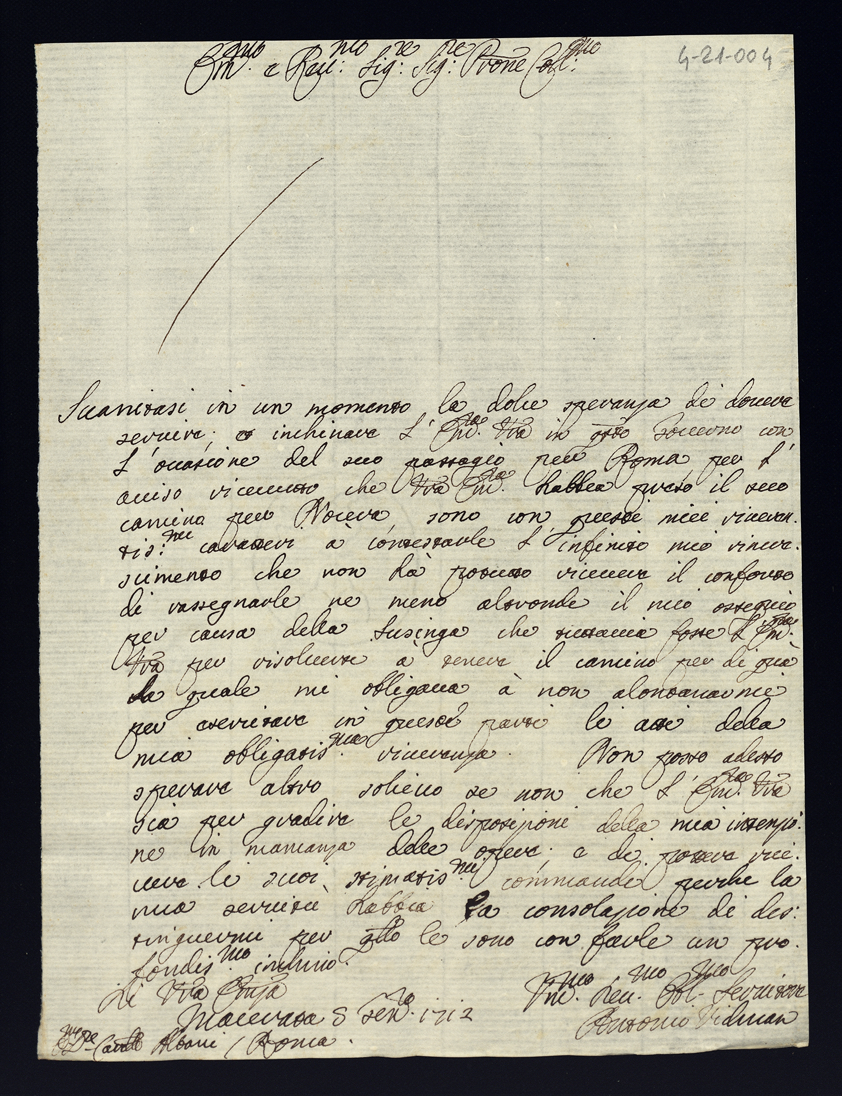 Em.mo e Reu.mo Sig.re Sig.re Prone Coll.mo
4-21-004
Suanitasi in un momento la dolce speranza di douere
seruire, e inchinare l'Em.za Vra in qsto Gouerno con
l'occasione del suo passagio per Roma per l'
auiso riceuuto che Vra Em.za habbia preso il suo
camino per Nocera sono con queste mie riueren.
tis.me carattere à contestarle l'infinito mio rincre.
scimento che non hà potuto riceuere il conforto
di rassegnarle ne meno altronde il mio ossequio
per causa della lusinga che tuttauia fosse l'Em.za
Vra per risoluere à tenere il camino per di quà
la quale mi obligaua à non alontanarmi
per essercitare in queste parti li atti della
mia obligatis.ma riuerenza. Non posso adesso
sperare altro solieuo se non che l'Em.za Vra
sia per gradire le disposizioni della mia intenzio.
ne in mancanza delle opere, e di potere rice.
uere li suoi stimatis.mi commandi perche la
mia seruitù habbia la consolazione di dis:
tinguermi per qllo le sono con farle un pro.
fondis.mo inchino.
Di Vra Emza
Vm.mo Deu.mo Obl.mo Seruitore
Macerata 8 Gen.o 1712
Antonio Vidman
Albani / Roma.